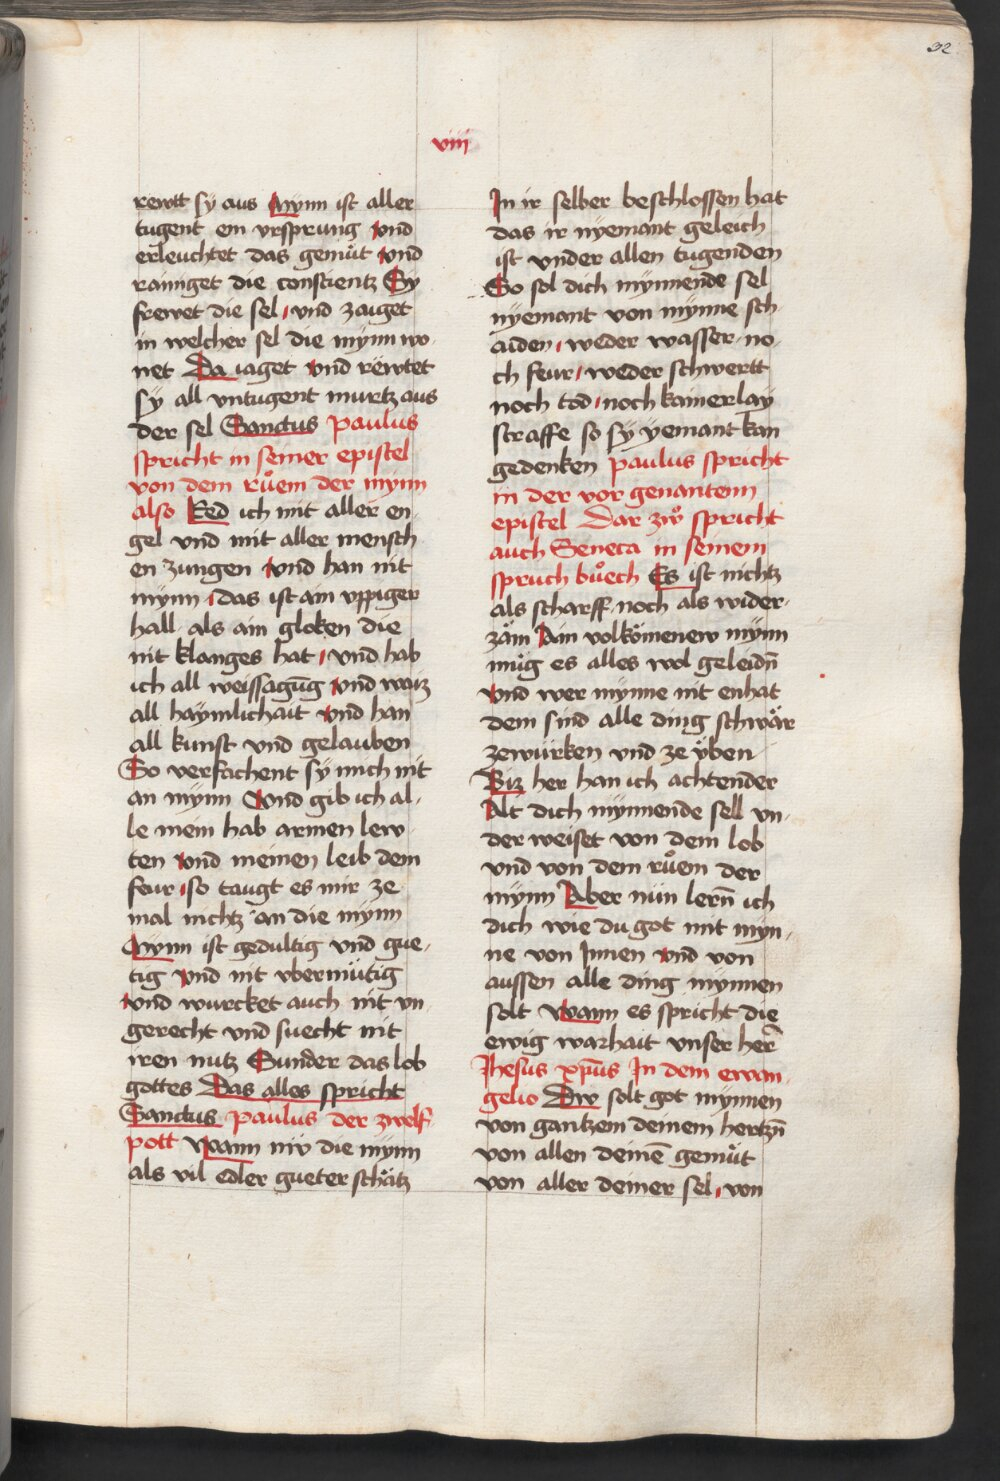 32
viii
rewtt sy aus Mynn ist aller
tugent ein vrsprung vnd
erleuchtet das gemüt vnd
rainiget die conscientz Sy
frewet die sel / vnd zaiget
in welcher sel die mynn wo-
net Da iaget vnd rewtet
sy all vntugent murtz aus
der sel Sanctus paulus
spricht in seiner epistel
von dem rüem der mynn
also Red ich mit aller en-
gel vnd mit aller mensch
en zungen vnd han nit
mynn / das ist ain vppiger
hall als ain gloken die
nit klanges hat / vnd hab
ich all weissagūg vnd waiz
all haymlichait vnd han
all kunst vnd gelauben
So verfachent sy mich nit
an mynn Vnd gib ich al-
le mein hab armen lew-
ten vnd meinen leib dem
feur / so taugt es mir ze
mal nichtz an die mynn
Mynn ist gedultig vnd gue-
tig vnd nit vbermütig
vnd wurcket auch nit vn-
gerecht vnd suecht nit
iren nutz Sunder das lob
gottes Das alles spricht
Sanctus paulus der zwelf-
pott Wann nw die mynn
als vil edler gueter schätz
In ir selber beschlossen hat
das ir nyemant geleich
ist vnder allen tugenden
So sol dich mynnende sel
nyemant von mynne sch
aiden / weder wasser no-
ch feur / weder schwertt
noch tod / noch kainerlay
straffe so sy yemant kan
gedenken paulus spricht
in der vor genantenn
epistel Dar zw spricht
auch Seneca in seinem
spruch büech Es ist nichtz
als scharff noch als wider-
zäm Ain volkömenew mynn
müg es alles wol geleidn̄
Vnd wer mynne nit enhat
dem sind alle ding schwär
zewürken vnd ze yben
Biz her han ich achtender
Alt dich mynnende sell vn-
der weiset von dem lob
vnd von dem rüem der
mynn Aber nün lern̄ ich
dich wie du got mit myn-
ne von Innen vnd von
aussen alle ding mynnen
solt Wann es spricht die
ewig warhait vnser her̄
Jhesus xp̄us In dem ewan-
gelio Dw solt got mynnen
von gantzem deinem hertzn̄
von allen deinē gemüt
von aller deiner sel / von